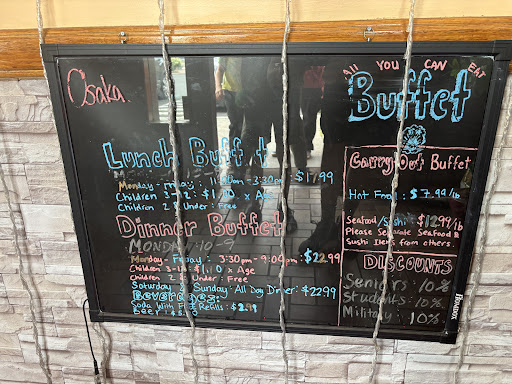 Osaka
All YOU CAN EAT
Buffet
Lunch Buffet
Monday - Friday : 11:00am - 3:30pm : $17.99
Children 3-12 : $1.10 x Age
Children 2 & Under : Free
Dinner Buffet
Monday - Friday : 3:30pm - 9:00pm : $22.99
Children 3-12 : $1.10 x Age
Children 2 & Under : Free
Saturday & Sunday - All Day Dinner : $22.99
Beverages:
Soda With Refills : $2.99
Beer :
Carry Out Buffet
Hot Food : $7.99/lb
Seafood/Sushi : $12.99/lb
Please Separate Seafood &
Sushi Items from others
DISCOUNTS
Seniors : 10%
Students : 10%
Military : 10%